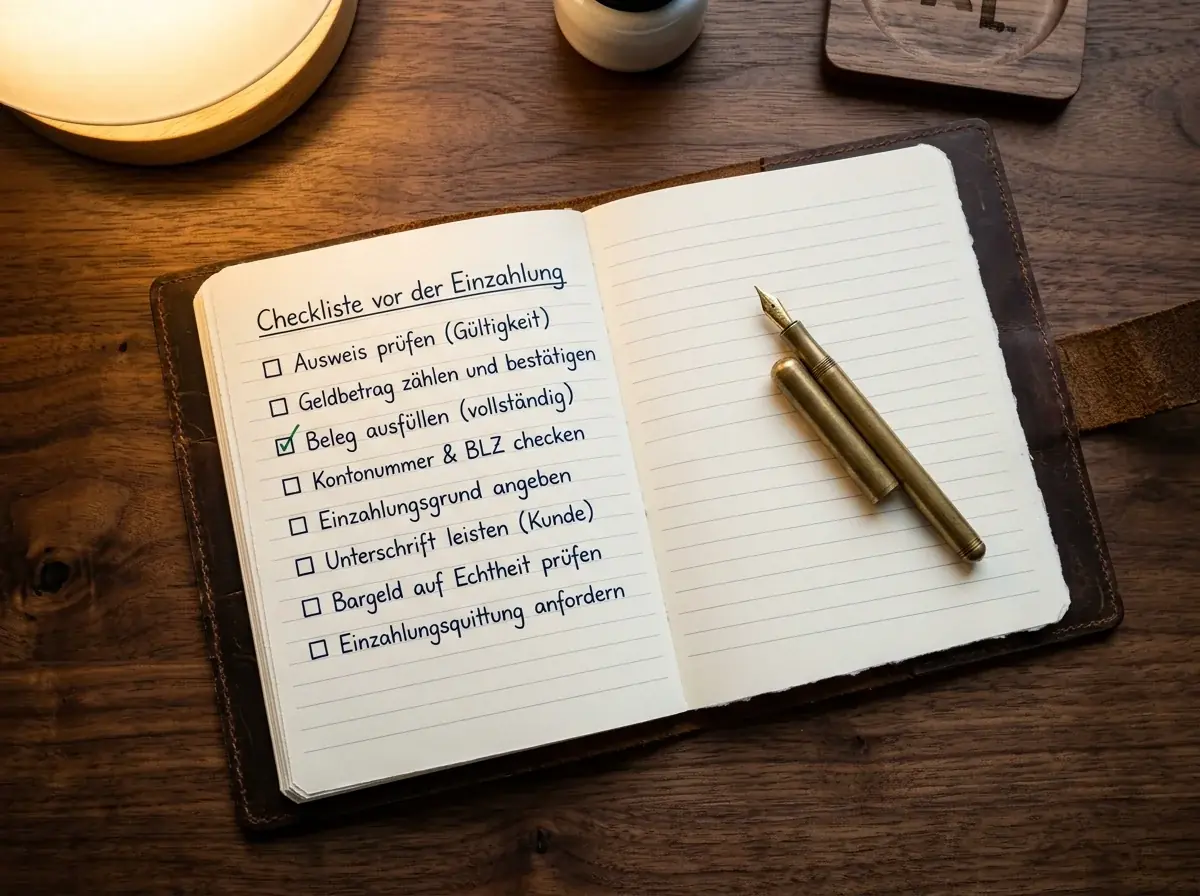 Checkliste vor der Einzahlung
☐ Ausweis prüfen (Gültigkeit)
☐ Geldbetrag zählen und bestätigen
☑ Beleg ausfüllen (vollständig)
☐ Kontonummer & BLZ checken
☐ Einzahlungsgrund angeben
☐ Unterschrift leisten (Kunde)
☐ Bargeld auf Echtheit prüfen
☐ Einzahlungsquittung anfordern